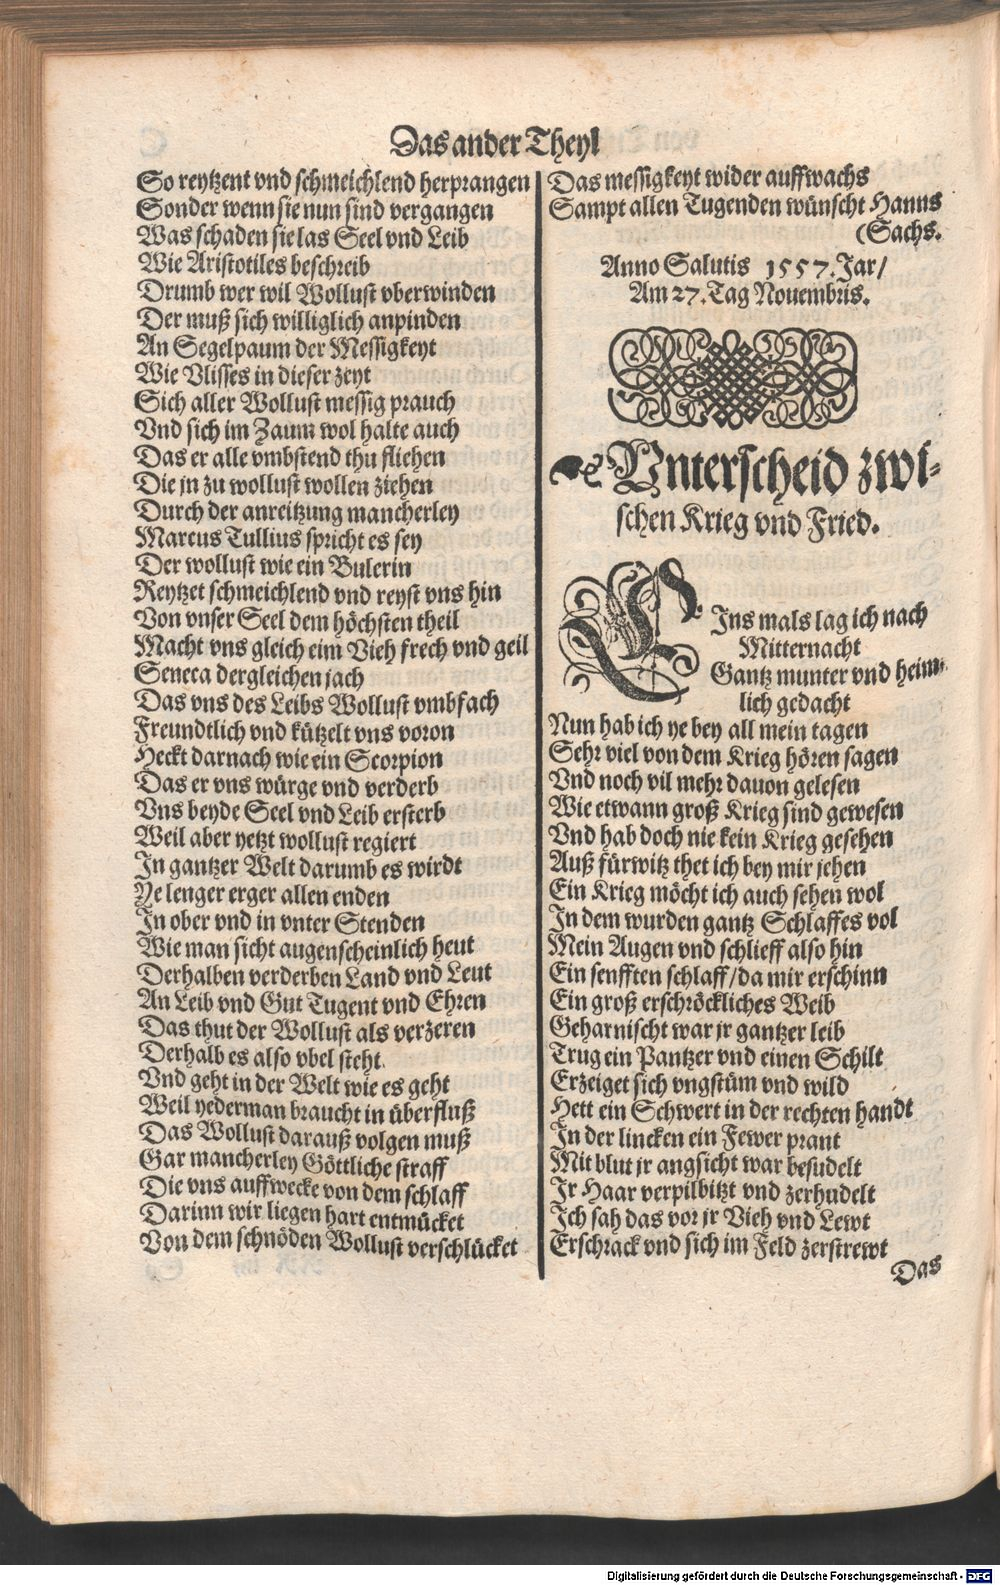 Das ander Theyl
So reytzent vnd schmeichlend herprangen
Sonder wenn sie nun sind vergangen
Was schaden sie las Seel vnd Leib
Wie Aristotiles beschreib
Drumb wer wil Wollust vberwinden
Der muß sich williglich anpinden
An Segelpaum der Messigkeyt
Wie Vlisses in dieser zeyt
Sich aller Wollust messig prauch
Vnd sich im Zaum wol halte auch
Das er alle vmbstend thu fliehen
Die jn zu wollust wollen ziehen
Durch der anreitzung mancherley
Marcus Tullius spricht es sey
Der wollust wie ein Bulerin
Reytzet schmeichlend vnd reyst vns hin
Von vnser Seel dem höchsten theil
Macht vns gleich eim Vieh frech vnd geil
Seneca dergleichen jach
Das vns des Leibs Wollust vmbfach
Freundtlich vnd kützelt vns voron
Heckt darnach wie ein Scorpion
Das er vns würge vnd verderb
Vns beyde Seel vnd Leib ersterb
Weil aber yetzt wollust regiert
In gantzer Welt darumb es wirdt
Ye lenger erger allen enden
In ober vnd in vnter Stenden
Wie man sicht augenscheinlich heut
Derhalben verderben Land vnd Leut
An Leib vnd Gut Tugent vnd Ehren
Das thut der Wollust als verzeren
Derhalb es also vbel steht
Vnd geht in der Welt wie es geht
Weil yederman braucht in überfluß
Das Wollust darauß volgen muß
Gar mancherley Göttliche straff
Die vns auffwecke von dem schlaff
Darinn wir liegen hart entmücket
Von dem schnöden Wollust verschlücket
Das messigkeyt wider auffwachs
Sampt allen Tugenden wünscht Hanns
(Sachs.
Anno Salutis 1557. Jar/
Am 27. Tag Nouembris.
Vnterscheid zwi-
schen Krieg vnd Fried.
EIns mals lag ich nach
Mitternacht
Gantz munter vnd heim-
lich gedacht
Nun hab ich ye bey all mein tagen
Sehr viel von dem Krieg hören sagen
Vnd noch vil mehr dauon gelesen
Wie etwann groß Krieg sind gewesen
Vnd hab doch nie kein Krieg gesehen
Auß fürwitz thet ich bey mir jehen
Ein Krieg möcht ich auch sehen wol
In dem wurden gantz Schlaffes vol
Mein Augen vnd schlieff also hin
Ein senfften schlaff/da mir erschinn
Ein groß erschröckliches Weib
Geharnischt war jr gantzer leib
Trug ein Pantzer vnd einen Schilt
Erzeiget sich vngstüm vnd wild
Hett ein Schwert in der rechten handt
In der lincken ein Fewer prant
Mit blut jr angsicht war besudelt
Ir Haar verpilbitzt vnd zerhudelt
Ich sah das vor jr Vieh vnd Lewt
Erschrack vnd sich im Feld zerstrewt
Das
Digitalisierung gefördert durch die Deutsche Forschungsgemeinschaft - DFG